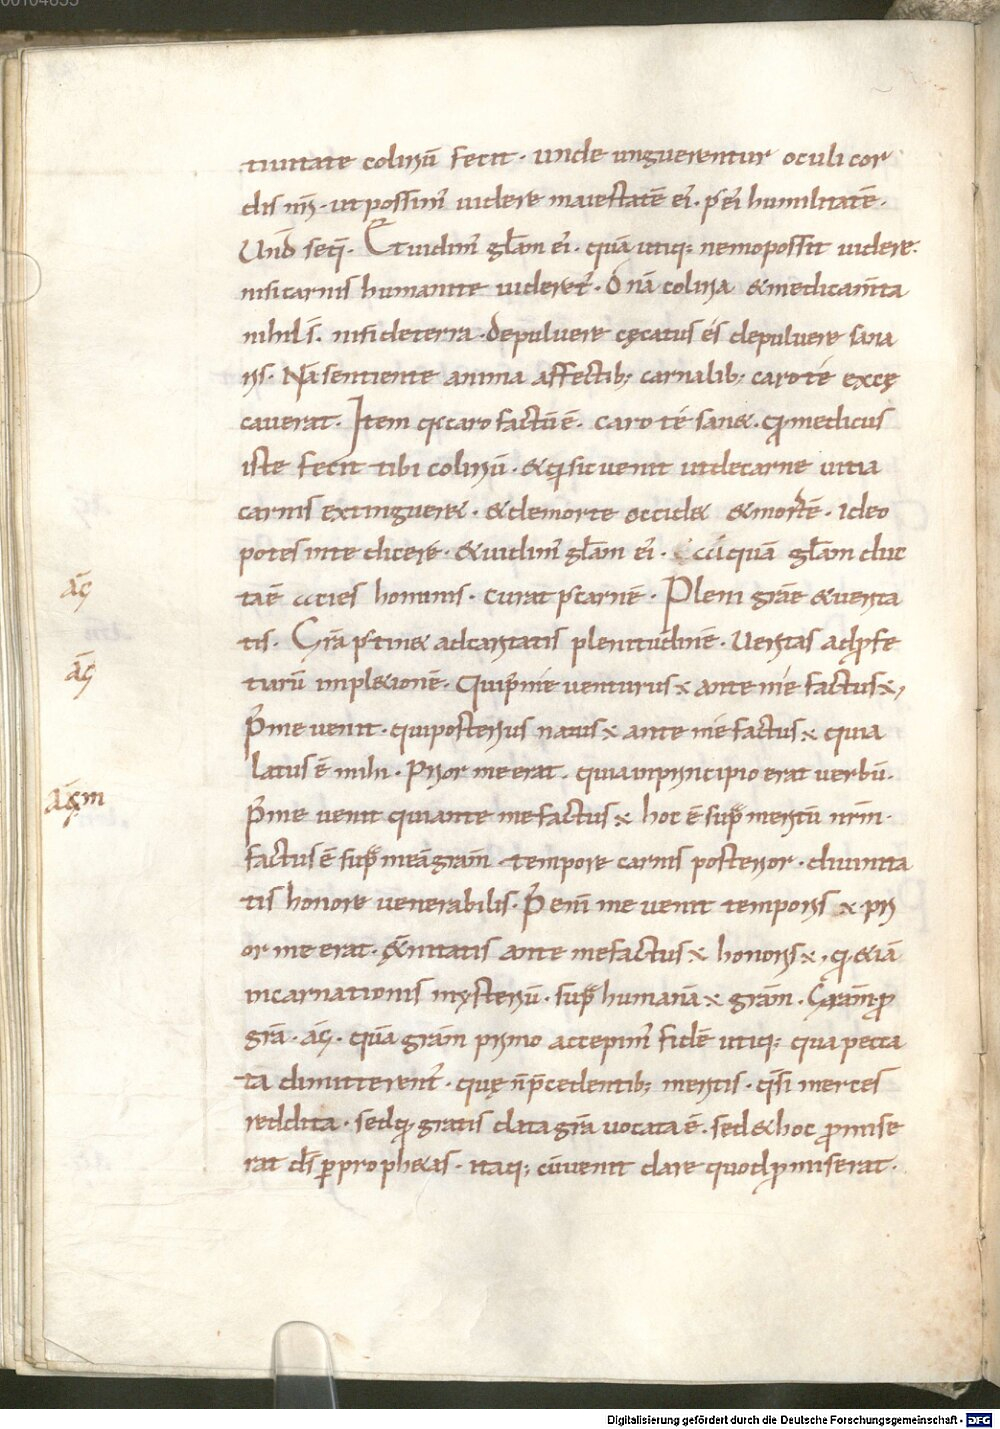 00104633
tiuitate colirıū fecit · unde unguerentur oculi cor
dis nr̄i · ut possim' uidere maiestatē ei' · p ei' humilitatē ·
Und seq̄ · Et uidim' glām ei' · quā utiq; nemo possit uidere ·
nisi carnis humanitate uideret' · Oīa colirıa & medicam̄ta
nihil s̄ · nisi de terra · De puluere cęcatus és de puluere sana
ris · Nā sentiente anima affectib; carnalib; caro té excę
cauerat · Item q̄ caro factū ē · caro té san& · qm̄ medicus
iste fecit tibi colirıū · & qm̄ sic uenit ut de carne uitia
carnis extinguer& · & de morte occid& & mortē · Ideo
potes in te dicere · & uidim' glām ei' · quā glām duc
taē acies hominis · curat' p carnē · Pleni grāe & uerita
tis · Grā ptin& ad caritatis plenitudinē · Ueritas ad pfe
turū impl&ionē · Qui p' me uenturus ÷ ante me factus ÷,
P' me uenit · qui posterius natus ÷ ante me factus ÷ quia
latus ē mihi · Prior me erat · quia in principio erat uerbū ·
P' me uenit qui ante me factus ÷ hoc ē sup meritū nrm̄ ·
factus ē sup meā grām · tempore carnis posterior · diuinita
tis honore uenerabilis · P' enī me uenit temporis ÷ · pri
or me erat · &nitatis ante me factus ÷ honoris ÷ · qm̄ &iā
incarnationis mysteriū · sup humanā ÷ grām · Grām p
grā · āḡ · quā grām primo accepim' fidē utiq; qua pecca
ta dimitterent' · quę n̄ p̄cedentib; meritis · q̄si merces
reddita · sed qm̄ gratis data grā uocata ē · sed & hoc pmise
rat ds̄ p proph&as · itaq; cū uenit dare quod pmiserat ·
āḡ
āḡ
āḡm
Digitalisierung gefördert durch die Deutsche Forschungsgemeinschaft - DFG